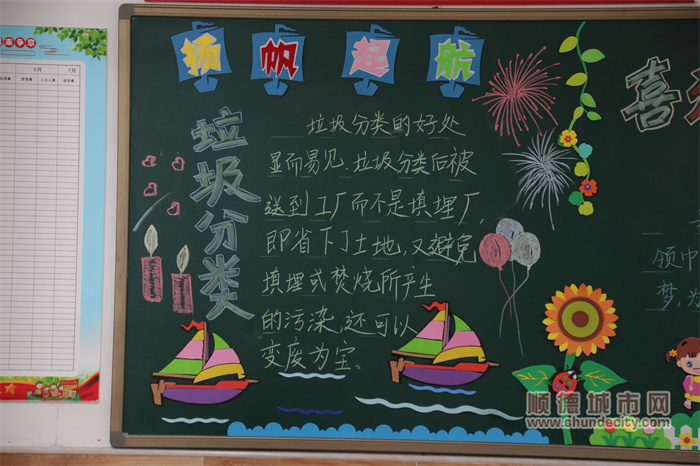 扬帆起航
垃圾分类
垃圾分类的好处
显而易见,垃圾分类后被
送到工厂而不是填埋厂,
即省下了土地,又避免
填埋或焚烧所产生
的污染,还可以
变废为宝。
喜
领巾
梦,
来争章
6月
7月
顺德城市网
www.shundecity.com